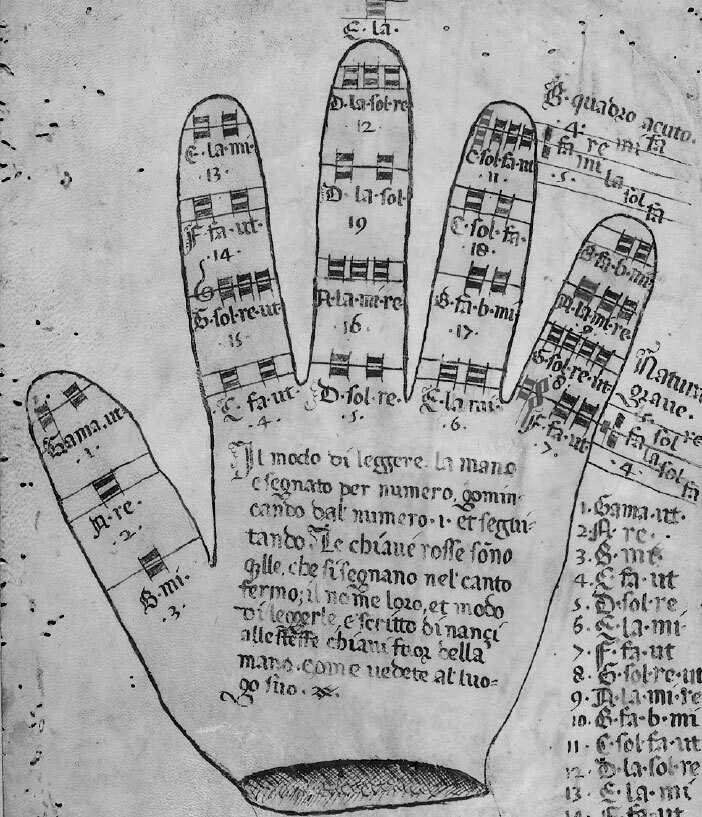 E·la·
D·la·sol·re
12·
D·la·sol
19
A·la·mi·re
·16·
D·sol·re·
·5·
E·la·mi·
·13·
F·fa·ut·
·14·
G·sol·re·ut
15
C·fa·ut·
·4·
C·sol·fa·ut
·11·
C·sol·fa·
·18·
B·fa·b·mi
·17·
E·la·mi·
·6·
B·fa·b·mi·
A·la·mi·re·
·9·
G·sol·re·ut·
·8·
F·fa·ut·
·7·
B·quadro acuto·
·4·
fa re mi fa
mi la sol fa
·5·
Natura
grave·
fa sol re
la sol fa
·4·
Gama·ut·
·1·
A·re·
·2·
B·mi·
·3·
Il modo di leggere la mano
e segnato per numero, gomin-
cando dal numero·1· et segui-
tando· Le chiave rosse sono
qlle, che si segnano nel canto
fermo; il nome loro, et modo
di leggerle, e scritto dinançi
alle stesse chiavi fuor della
mano·come vedete al luo-
go suo·
1·Gama·ut·
2·A·re·
3·B·mi·
4·C·fa·ut
5·D·sol·re
6·E·la·mi
7·F·fa·ut
8·G·sol·re·ut
9·A·la·mi·re
10·B·fa·b·mi
11·C·sol·fa·ut
12·D·la·sol·re
13·E·la·mi
14·F·fa·ut